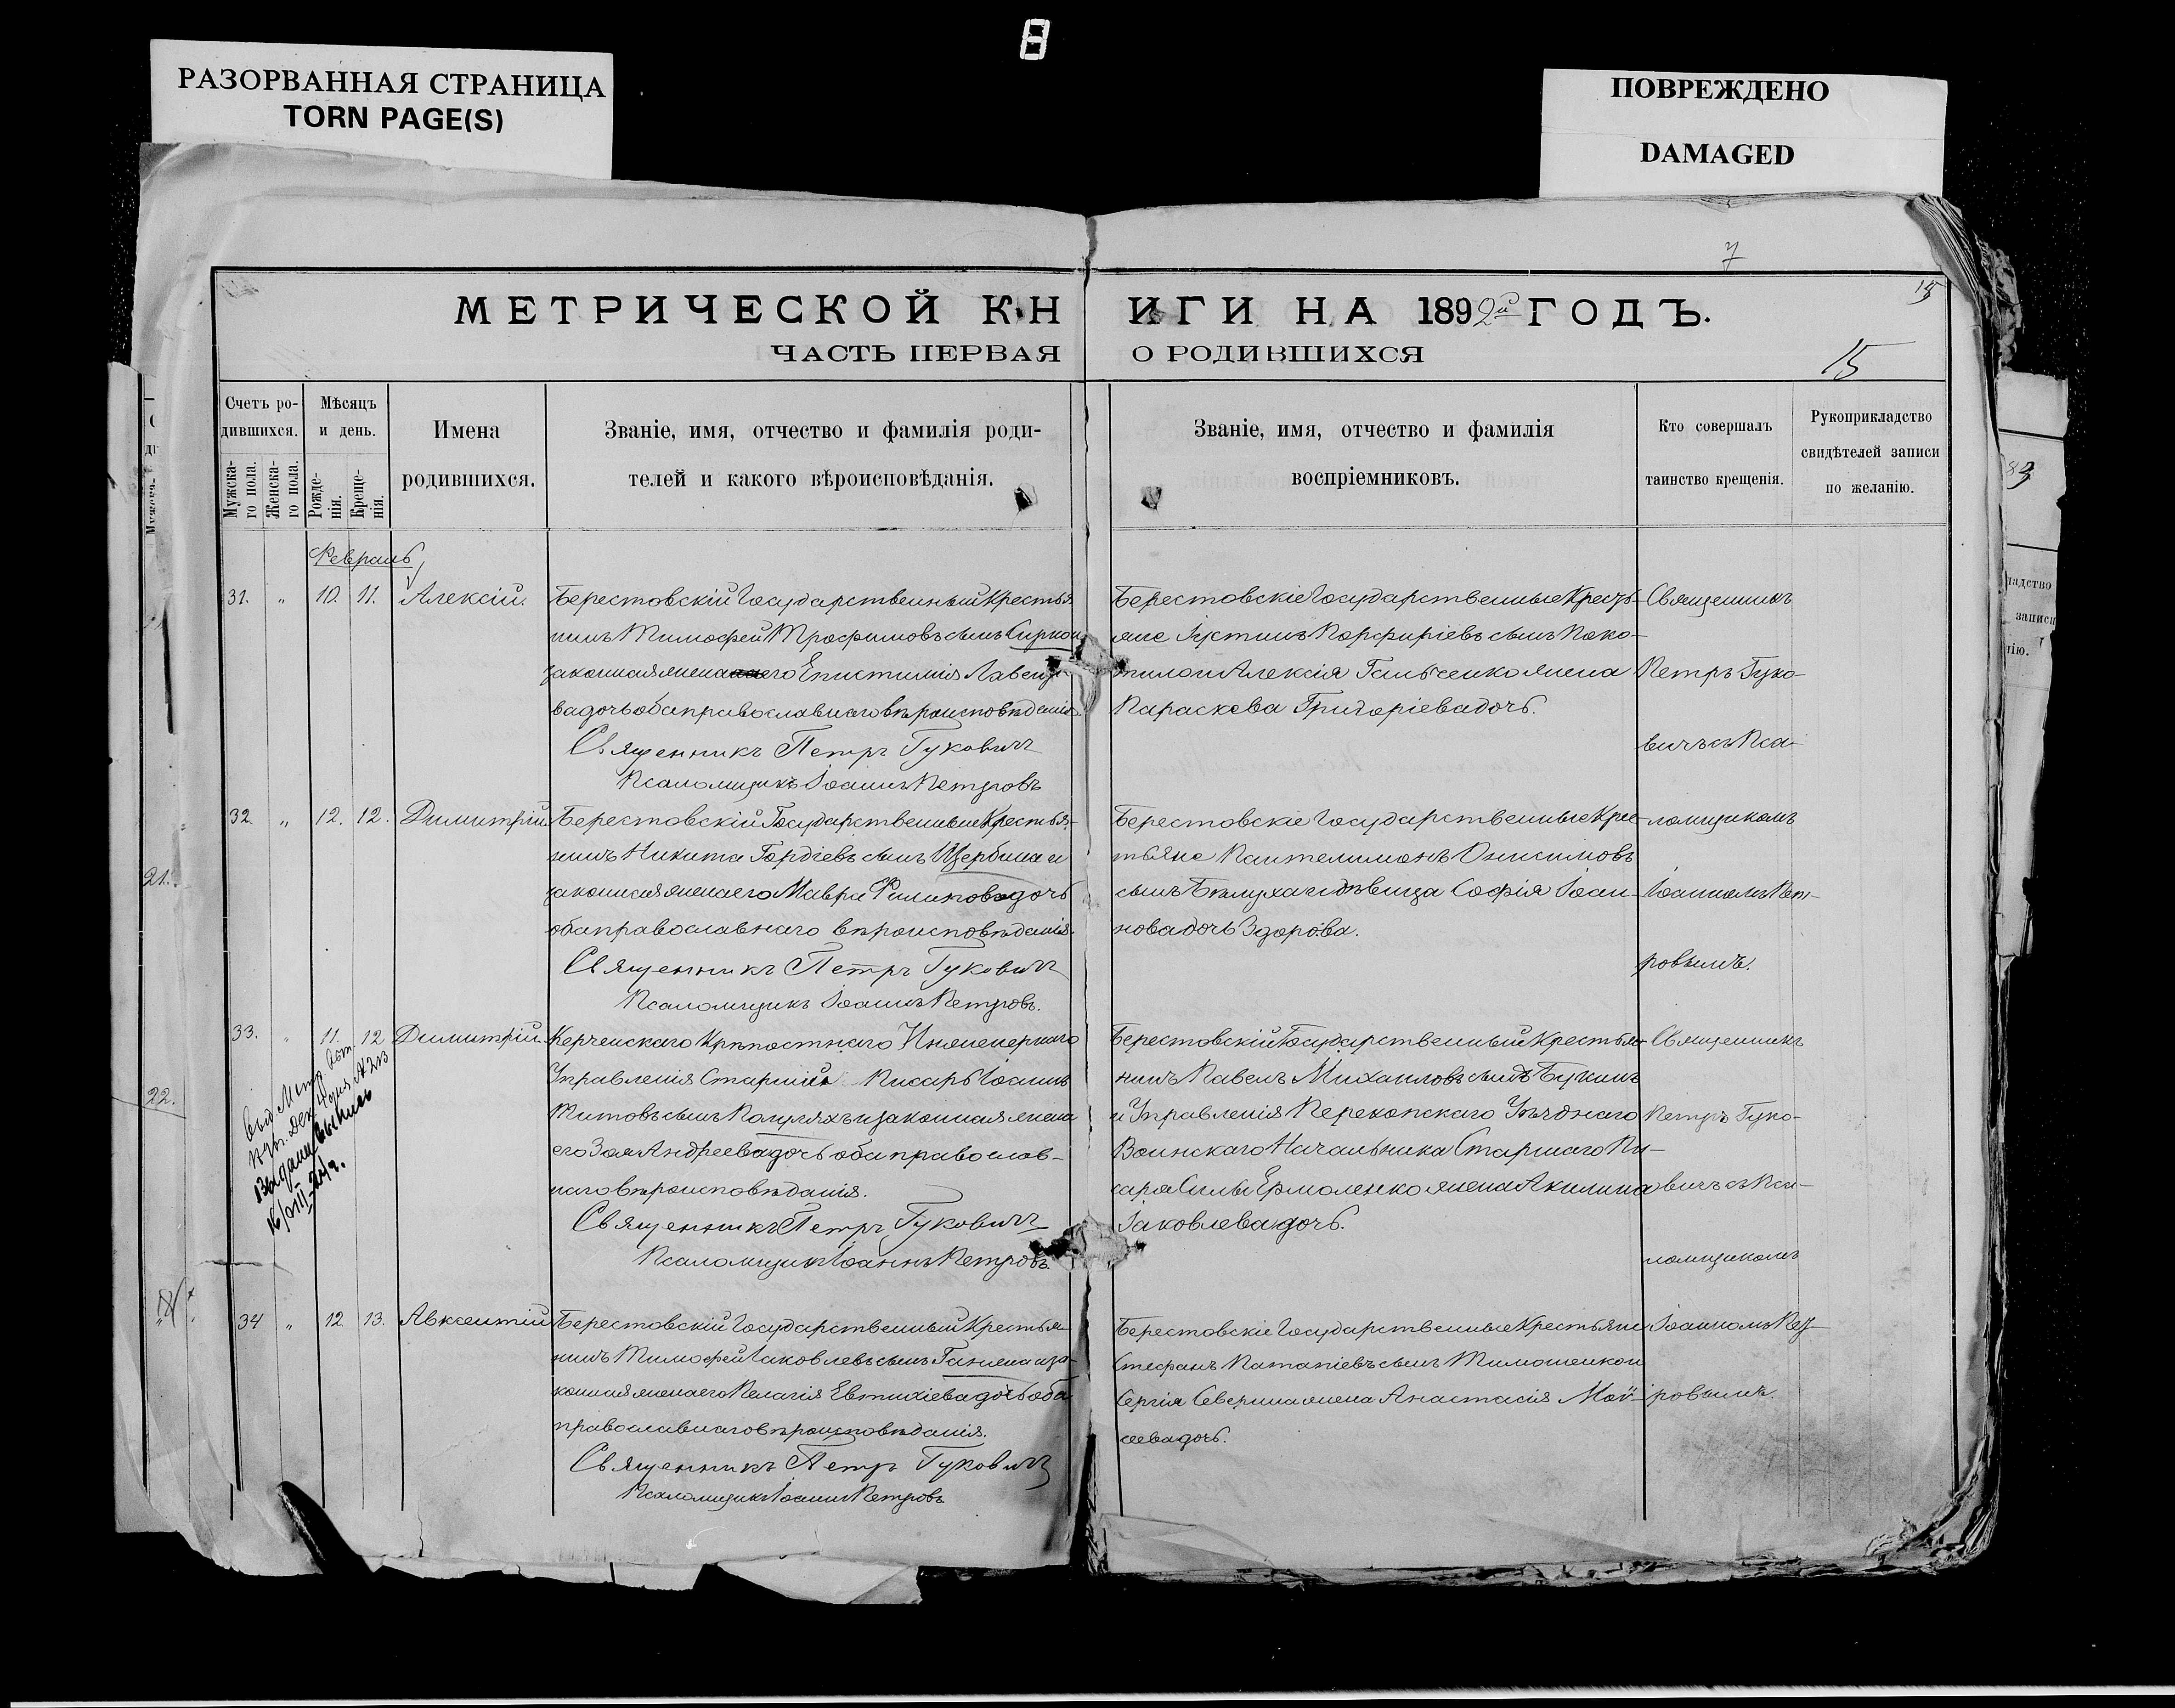 8
РАЗОРВАННАЯ СТРАНИЦА
TORN PAGE(S)
ПОВРЕЖДЕНО
DAMAGED
7
15
МЕТРИЧЕСКОЙ КНИГИ НА 1892й ГОДЪ.
ЧАСТЬ ПЕРВАЯ О РОДИВШИХСЯ
15
Счетъ ро-
дившихся.
Мужска-
го пола.
Женска-
го пола.
Мѣсяцъ
и день.
Рожде-
нія.
Креще-
нія.
Имена
родившихся.
Званіе, имя, отчество и фамилія роди-
телей и какого вѣроисповѣданія.
Званіе, имя, отчество и фамилія
воспріемниковъ.
Кто совершалъ
таинство крещенія.
Рукоприкладство
свидѣтелей записи
по желанію.
Февраль
31. " 10. 11. Алексій.
Берестовскій Государственный Крестья
нинъ Тимофей Трофимовъ сынъ
законная жена его Епистимія
ва дочь оба православнаго вѣроисповѣданія.
Священникъ Петръ Гуковичъ
Псаломщикъ Іоаннъ Петровъ
Берестовскіе Государственные Кресть-
яне Іустинъ Порфиріевъ сынъ Коко-
тило и Алексія Гальченко жена
Параскева Григоріева дочь.
Священникъ
Петръ Гуко-
вичъ съ Пса-
32. " 12. 12. Димитрій
Берестовскій Государственные Крестья-
нинъ Никита Гордіевъ сынъ Щербина и
законная жена его Мавра Филипова дочь
оба православнаго вѣроисповѣданія.
Священникъ Петръ Гуковичъ
Псаломщикъ Іоаннъ Петровъ.
Берестовскіе Государственные Крес-
тьяне Пантелимонъ Онисимовъ
сынъ Бѣлуха и дѣвица Софія Іоан-
нова дочь Здорова.
ломщикомъ
Іоанномъ Пет-
ровымъ.
33. " 11. 12 Димитрій.
Керченскаго Крѣпостнаго Инженернаго
Управленія Старшій Писарь Іоаннъ
Титовъ сынъ Полуляхъ и законная жена
его Зоя Андреева дочь оба православ-
наго вѣроисповѣданія.
Священникъ Петръ Гуковичъ
Псаломщикъ Іоаннъ Петровъ.
Берестовскій Государственный Крестья-
нинъ Павелъ Михаиловъ сынъ Букинъ
и Управленія Перекопскаго Уѣзднаго
Воинскаго Начальника Старшаго Пи-
саря Силы Ермоленко жена Акилина
Іаковлева дочь.
Священникъ
Петръ Гуко-
вичъ съ Пса-
ломщикомъ
34 " 12 13. Авксентій
Берестовскій Государственный Крестья-
нинъ Тимофей Іаковлевъ сынъ Ганжа и за-
конная жена его Пелагія Евтихіева дочь оба
православнаго вѣроисповѣданія.
Священникъ Петръ Гуковичъ
Псаломщикъ Іоаннъ Петровъ
Берестовскіе Государственные Крестьяне
Стефанъ Патапіевъ сынъ Тимошенко и
Сергія Северина жена Анастасія Мой-
сеева дочь.
Іоанномъ Пет-
ровымъ.
21.
22.